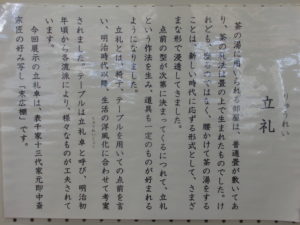 立礼
りゅうれい
茶の湯に用いられる部屋は、普通畳が敷いてあ
り、茶の
は畳の上で生まれたものでした。け
れども、
ではなく、腰かけて茶の湯をする
ことは、新しい時代に応ずる形式として、さまざ
まな形で浸透してきました。
点前の型が次第に決まってくるにつれて、立礼
という作法を生み、道具も一定のものが好まれる
ようになりました。
立礼とは、椅子、テーブルを用いての点前を言
い、明治時代以降、生活の洋風化に合わせて考案
されました。テーブルは立礼卓と呼び、明治初
年頃から各流派により、様々なものが工夫されて
います。
今回展示の立礼卓は、表千家十三代家元即中斎
宗匠の好み写し「末広棚」です。